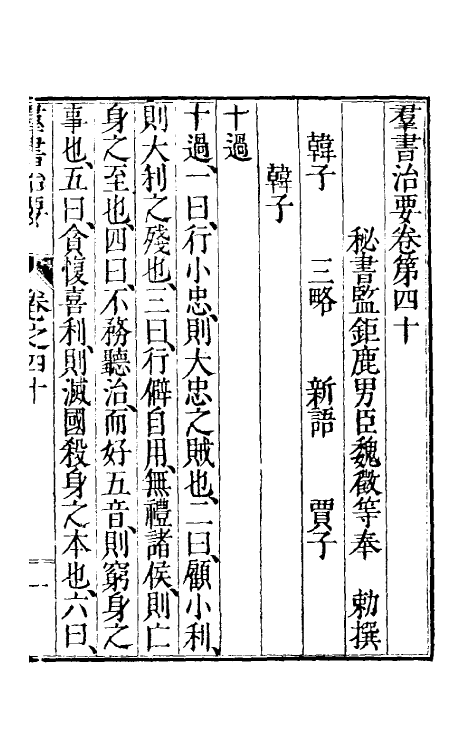 羣書治要卷第四十
秘書監鉅鹿男臣魏徵等奉　勅撰
韓子　三略　新語　賈子
韓子
十過
十過、一曰、行小忠、則大忠之賊也、二曰、顧小利、
則大利之殘也、三曰、行僻自用、無禮諸侯、則亡
身之至也、四曰、不務聽治、而好五音、則窮身之
事也、五曰、貪愎喜利、則滅國殺身之本也、六曰、
羣書治要　卷之四十　一